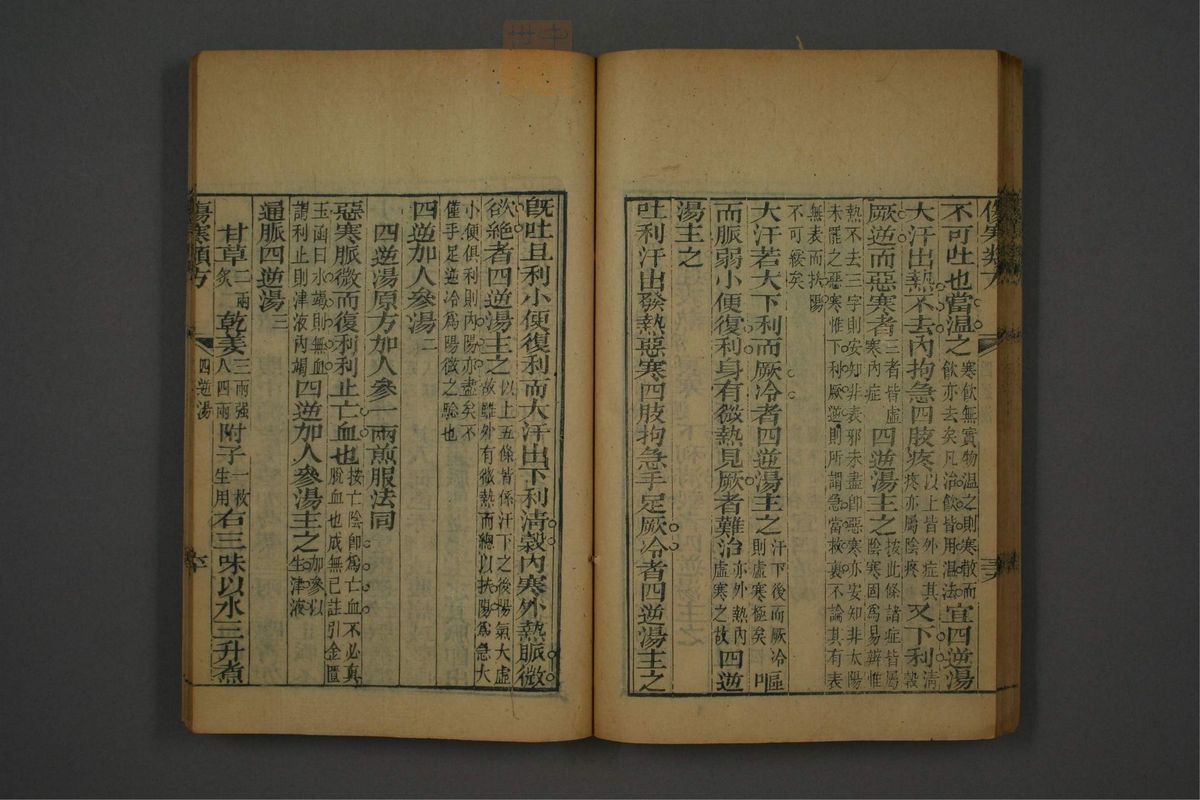 傷寒類方
不可吐也當温之寒飲無實物温之則寒散而飲亦去矣凡治飲皆用温法宜四逆湯
大汗出熱不去内拘急四肢疼以上皆外症其疼亦屬陰疼又下利清穀
厥逆而惡寒者三者皆虛寒内症四逆湯主之按此條諸症皆屬陰寒固爲易辨惟
熱不去三字則安知非表邪未盡即惡寒亦安知非太陽未罷之惡寒惟下利厥逆則所謂急當救裏不論其有表
無表而扶陽不可緩矣
大汗若大下利而厥冷者四逆湯主之汗下後而厥冷則虛寒極矣嘔
而脈弱小便復利身有微熱見厥者難治亦外熱内虛寒之故四逆
湯主之
吐利汗出發熱惡寒四肢拘急手足厥冷者四逆湯主之
既吐且利小便復利而大汗出下利清穀内寒外熱脈微
欲絶者四逆湯主之以上五條皆係汗下之後陽氣大虛故雖外有微熱而總以扶陽爲急大
小便俱利則内陽亦盡矣不僅手足逆冷爲陽微之驗也
四逆加人參湯二
四逆湯原方加人參一兩煎服法同
惡寒脈微而復利利止亡血也按亡陰即爲亡血不必真脫血也成無己註引金匱
玉函曰水竭則無血謂利止則津液内竭四逆加人參湯主之加參以生津液
通脈四逆湯三
甘草二兩炙乾姜三兩强人四兩附子一枚生用右三味以水三升煮
傷寒類方
四逆湯